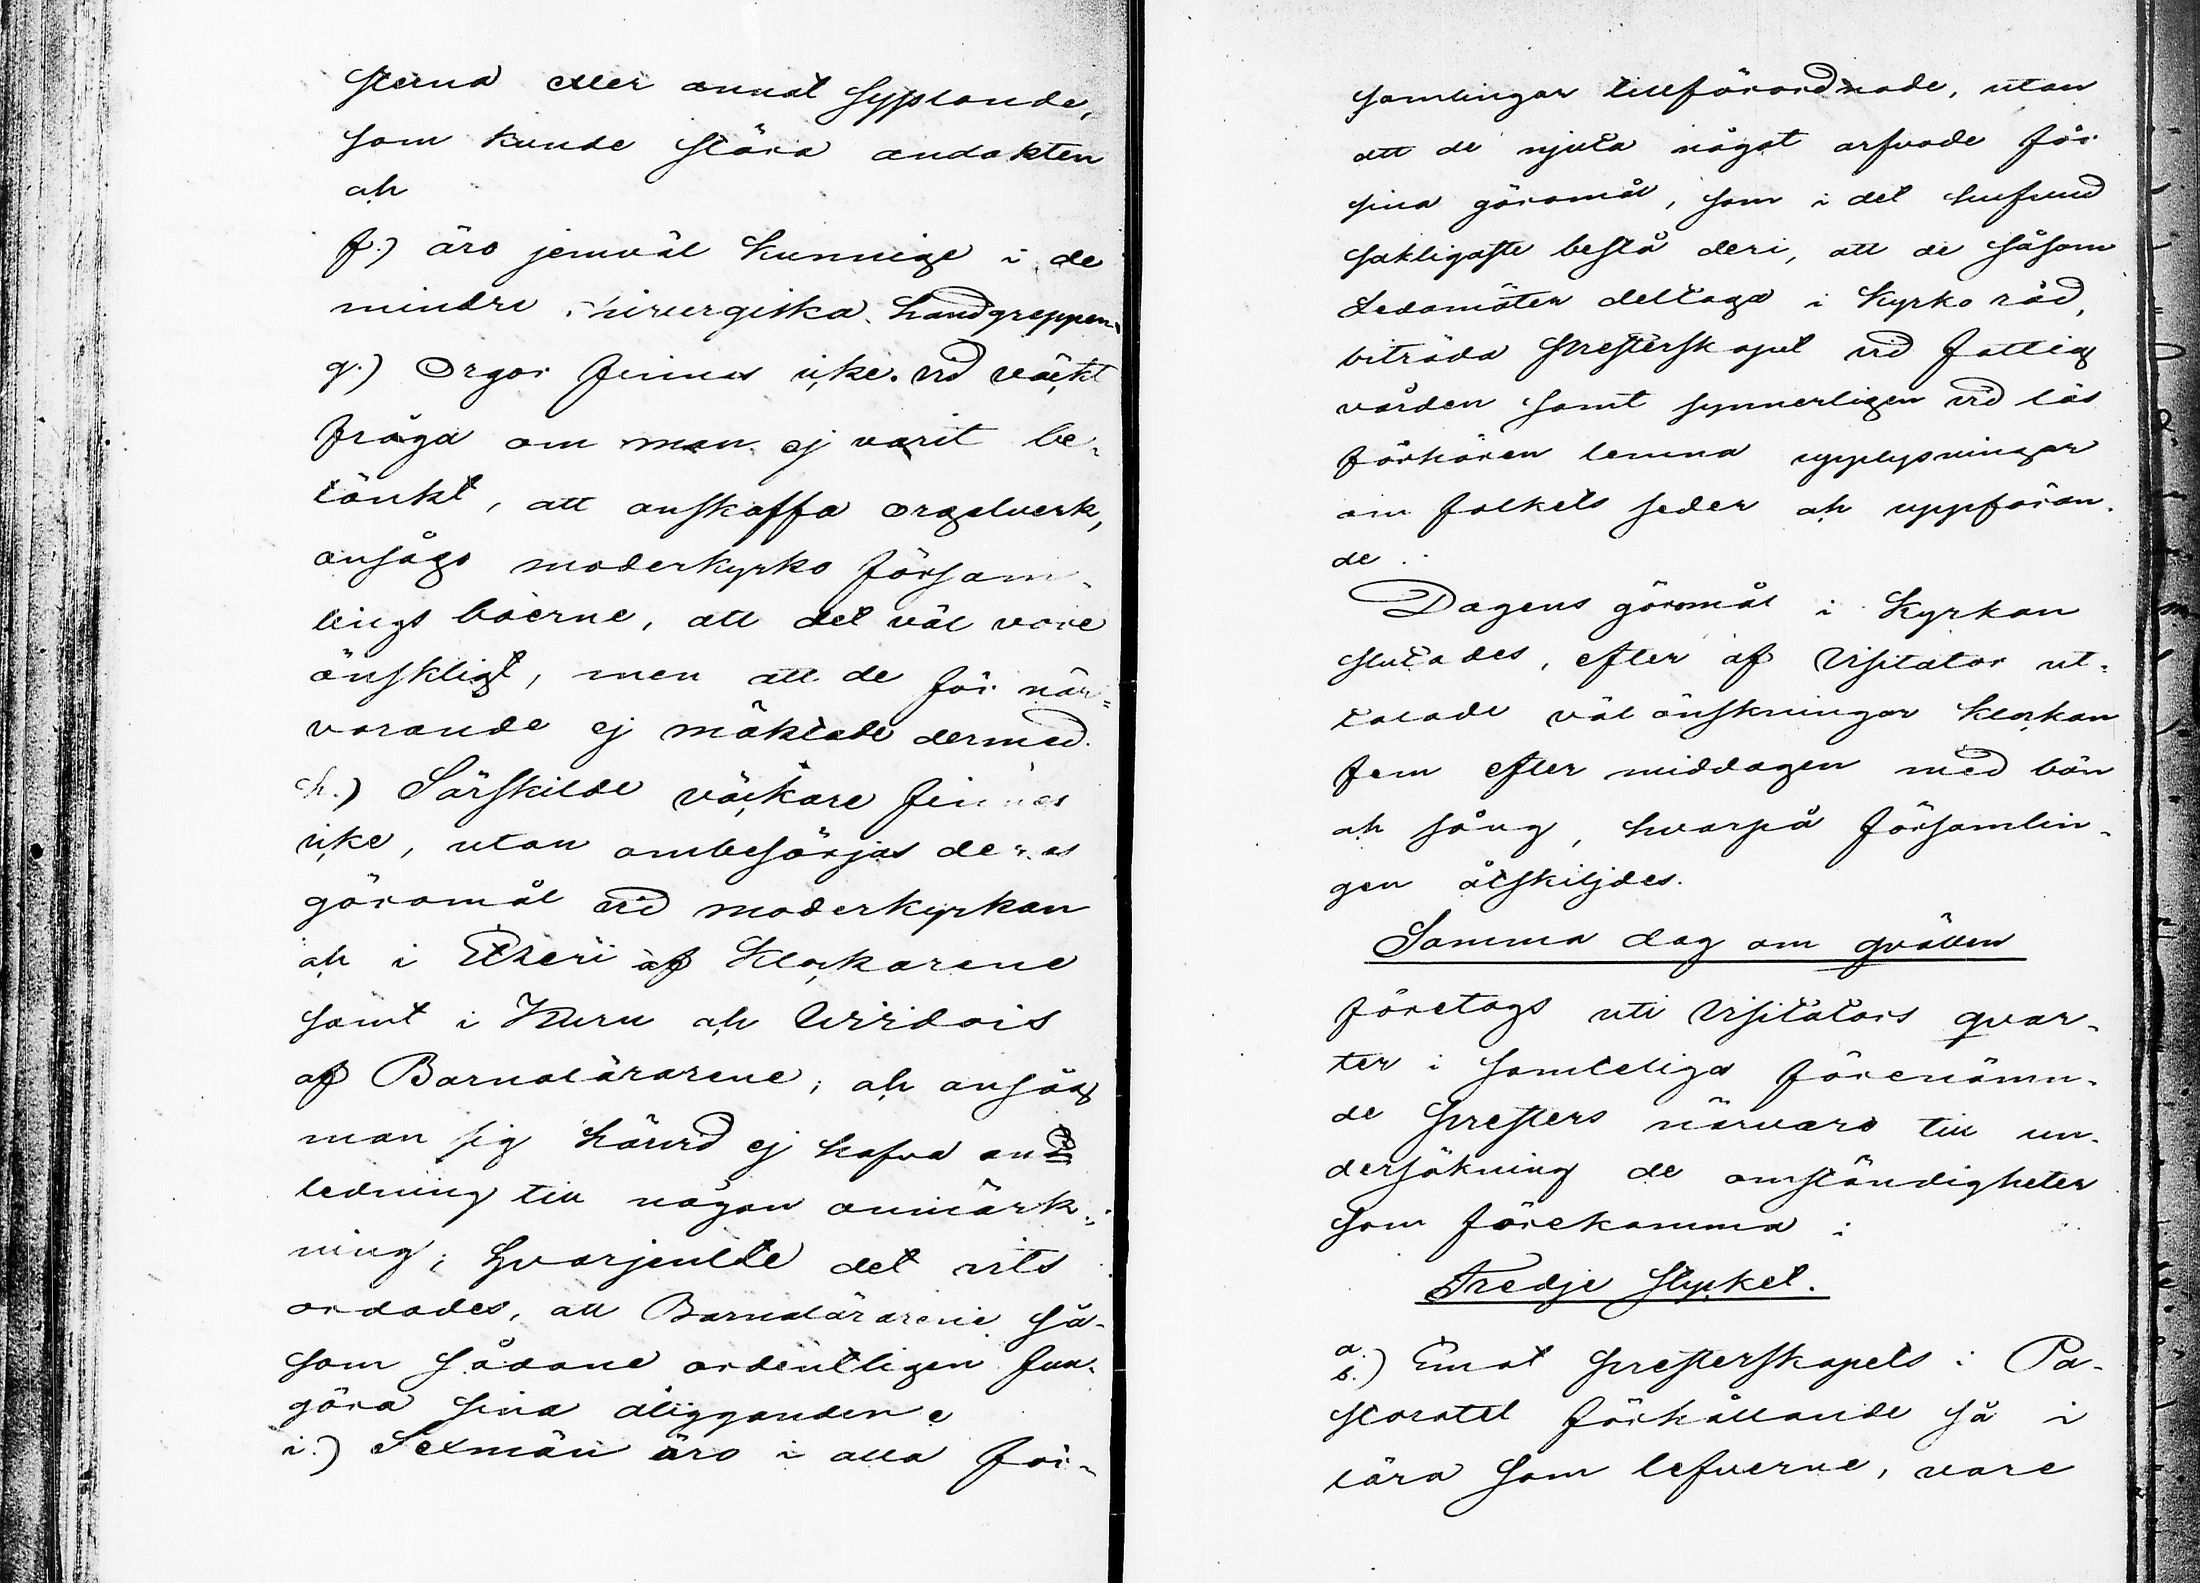 sterna eller annat sysslande,
som kunde störa andakten
och
f.) äro jemväl kunnige i de
mindre chirurgiska handgreppen.
g.) Orgor finnas icke. vid väckt
fråga om man ej varit be-
tänkt, att anskaffa orgelverk,
ansågo moderkyrko försam-
lings boerne, att det väl vore
önskligt, men att de för när-
varande ej mäktade dermed.
h.) Särskilde väckare finnas
icke, utan ombesörjas deras
göromål vid moderkyrkan
och i Etseri af Klockarene
samt i Kuru och Wirdois
af Barnalärarene; och ansåg
man sig härvid ej hafva an
ledning till någon anmärk-
ning; hvarjemte det vits
ordades, att Barnalärarene så-
som sådane ordentligen fun-
göra sina åligganden
i.) Sexmän äro i alla för-
samlingar tillförordnade, utan
att de njuta något arfvode för
sina göromål, som i det hufvud
sakligaste bestå deri, att de såsom
Ledamöter deltaga i Kyrko råd,
biträda Presterskapet vid fattig
vården samt synnerligen vid läs
förhören lemna upplysningar
om folkets seder och uppföran-
de.
Dagens göromål i Kyrkan
slutades, efter af Visitator ut-
talade väl önskningar klockan
fem efter middagen med bön
och sång, hvarpå församlin-
gen åtskiljdes.
Samma dag om qvällen
företogs uti Visitators qvar-
ter i samteliga förenämn-
de Presters närvaro till un-
dersökning de omständigheter
som förekomma i
Tredje Stycket.
a.
b.) Emot Presterskapets i Pa-
storatet förhållande så i
lära som lefverne, vare